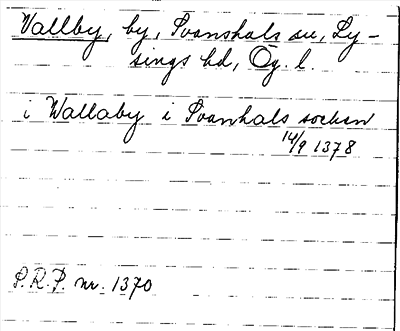 Vallby, by, Svanshals sn, Ly-
sings hd, Ög. l.
i Wallaby i Svanhals socken
14/9 1378
P.R.P. nr. 1370